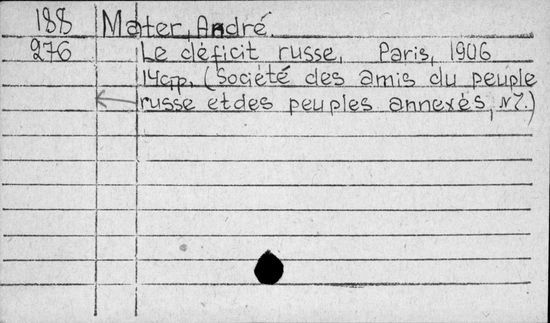 188 Mater, André.
276 Le déficit russe, Paris, 1906
14 стр. (Société des amis du peuple
russe et des peuples annexés, N7.)